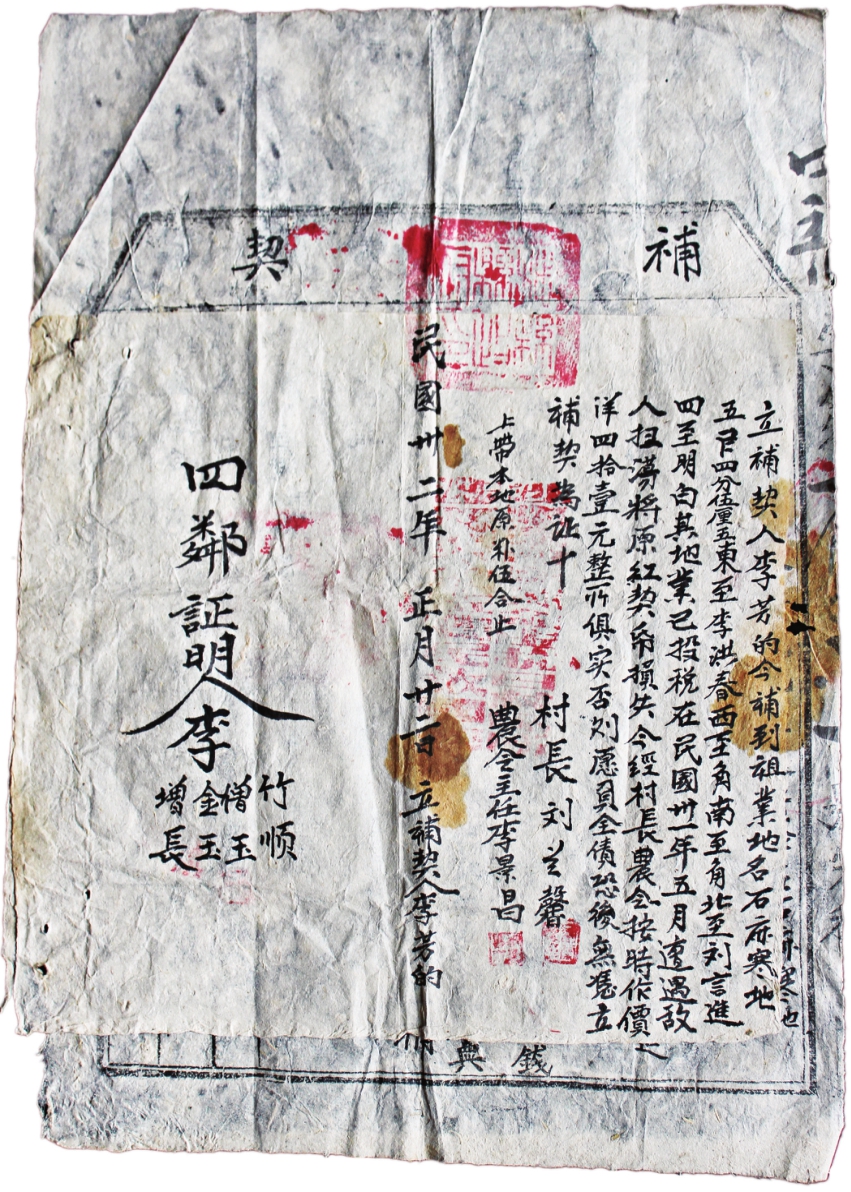 補契
立補契人李芳的今補到祖業地名石府寒地
五㽵四分伍厘五東至李洪春西至角南至角北至刘言進
四至明白其地業已投税在民國卅一年五月遭遇敌
人扫荡將原红契帋損失今經村長農会按時作價
洋四拾壹元整所俱实否则愿負全债恐後無凴立
補契為証十
上帶本地原粮伍合止
村長刘兰馨
農会主任李景昌
民國卅二年 正月廿二日 立補契人李芳的
四鄰証明人李
竹順
僧玉
金玉
增長
錢與